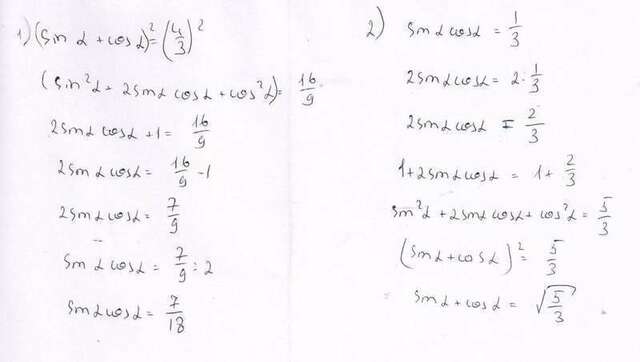 1) (sin α + cos α)² = (4/3)²
(sin²α + 2sin α cos α + cos²α) = 16/9
2sin α cos α + 1 = 16/9
2sin α cos α = 16/9 - 1
2sin α cos α = 7/9
sin α cos α = 7/9 : 2
sin α cos α = 7/18
2) sin α cos α = 1/3
2sin α cos α = 2 · 1/3
2sin α cos α = 2/3
1 + 2sin α cos α = 1 + 2/3
sin²α + 2sin α cos α + cos²α = 5/3
(sin α + cos α)² = 5/3
sin α + cos α = √(5/3)